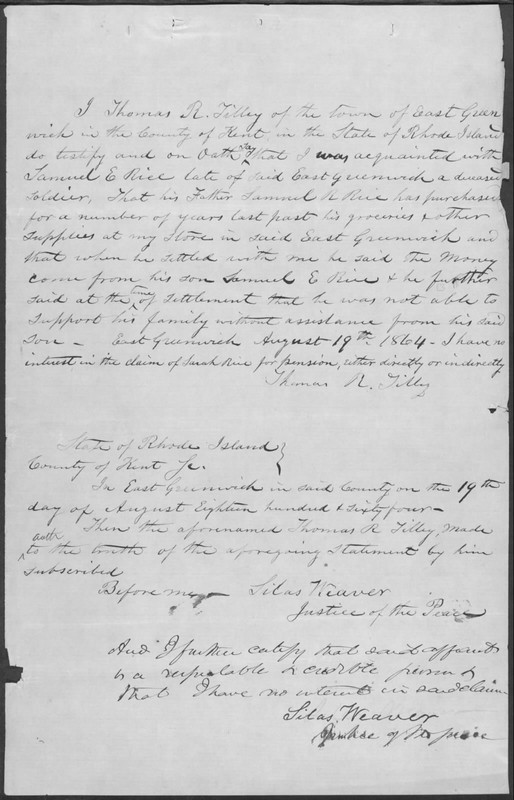 I Thomas R. Tilley of the town of East Green
wich in the County of Kent in the State of Rhode Island
do testify and on Oath say that I was acquainted with
Samuel E Rice late of said East Greenwich a deceased
soldier, That his Father Samuel R Rice has purchased
for a number of years last past his groceries & other
supplies at my Store in said East Greenwich and
that when he settled with me he said the Money
come from his son Samuel E Rice & he further
said at the time of settlement that he was not able to
support his family without assistance from his said
son - East Greenwich August 19th 1864 - I have no
interest in the claim of Sarah Rice for pension, either directly or indirectly
Thomas R. Tilley
State of Rhode Island }
County of Kent Sc.
In East Greenwich in said County on the 19th
day of August Eighteen hundred & sixty four -
Then the aforenamed Thomas R Tilley, made
oath to the truth of the aforegoing Statement by him
subscribed
Before me - Silas Weaver
Justice of the Peace
And I further certify that said affiant
is a respectable & credible person &
that I have no interest in said claim
Silas Weaver
Justice of the peace